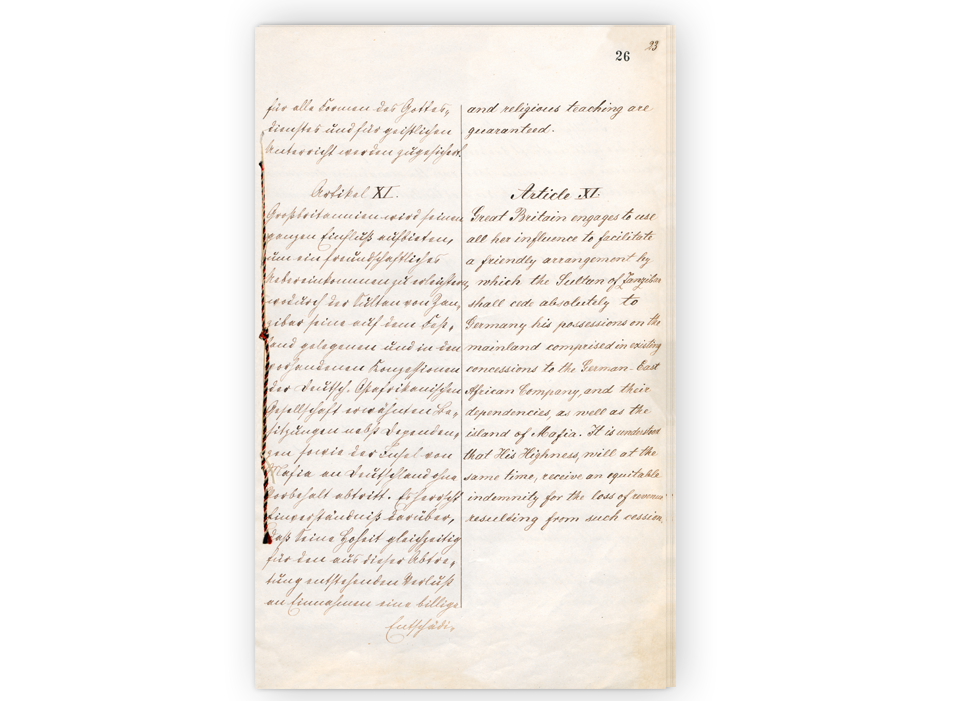 23
26
für alle Formen des Gottes-
dienstes und für geistlichen
Unterricht werden zugesichert.
Artikel XI.
Großbritannien wird seinen
ganzen Einfluß aufbieten,
um ein freundschaftliches
Uebereinkommen zu erleichtern,
wodurch der Sultan von San-
zibar seine auf dem Fest-
land gelegenen und in den
vorhandenen Konzessionen
der Deutsch-Ostafrikanischen
Gesellschaft erwähnten Be-
sitzungen nebst Dependen-
zen sowie der Insel von
Mafia an Deutschland ohne
Vorbehalt abtritt. Es herrscht
Einverständniß darüber,
daß Seine Hoheit gleichzeitig
für den aus dieser Abtre-
tung entstehenden Verlust
an Einnahmen eine billige
Entschädi-
and religious teaching are
guaranteed.
Article XI.
Great Britain engages to use
all her influence to facilitate
a friendly arrangement by
which the Sultan of Zanzibar
shall cede absolutely to
Germany his possessions on the
mainland comprised in existing
concessions to the German-East
African Company, and their
dependencies, as well as the
island of Mafia. It is understood
that His Highness, will at the
same time, receive an equitable
indemnity for the loss of revenue
resulting from such cession.